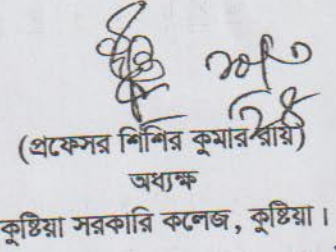 (প্রফেসর শিশির কুমার রায়)
অধ্যক্ষ
কুষ্টিয়া সরকারি কলেজ, কুষ্টিয়া।